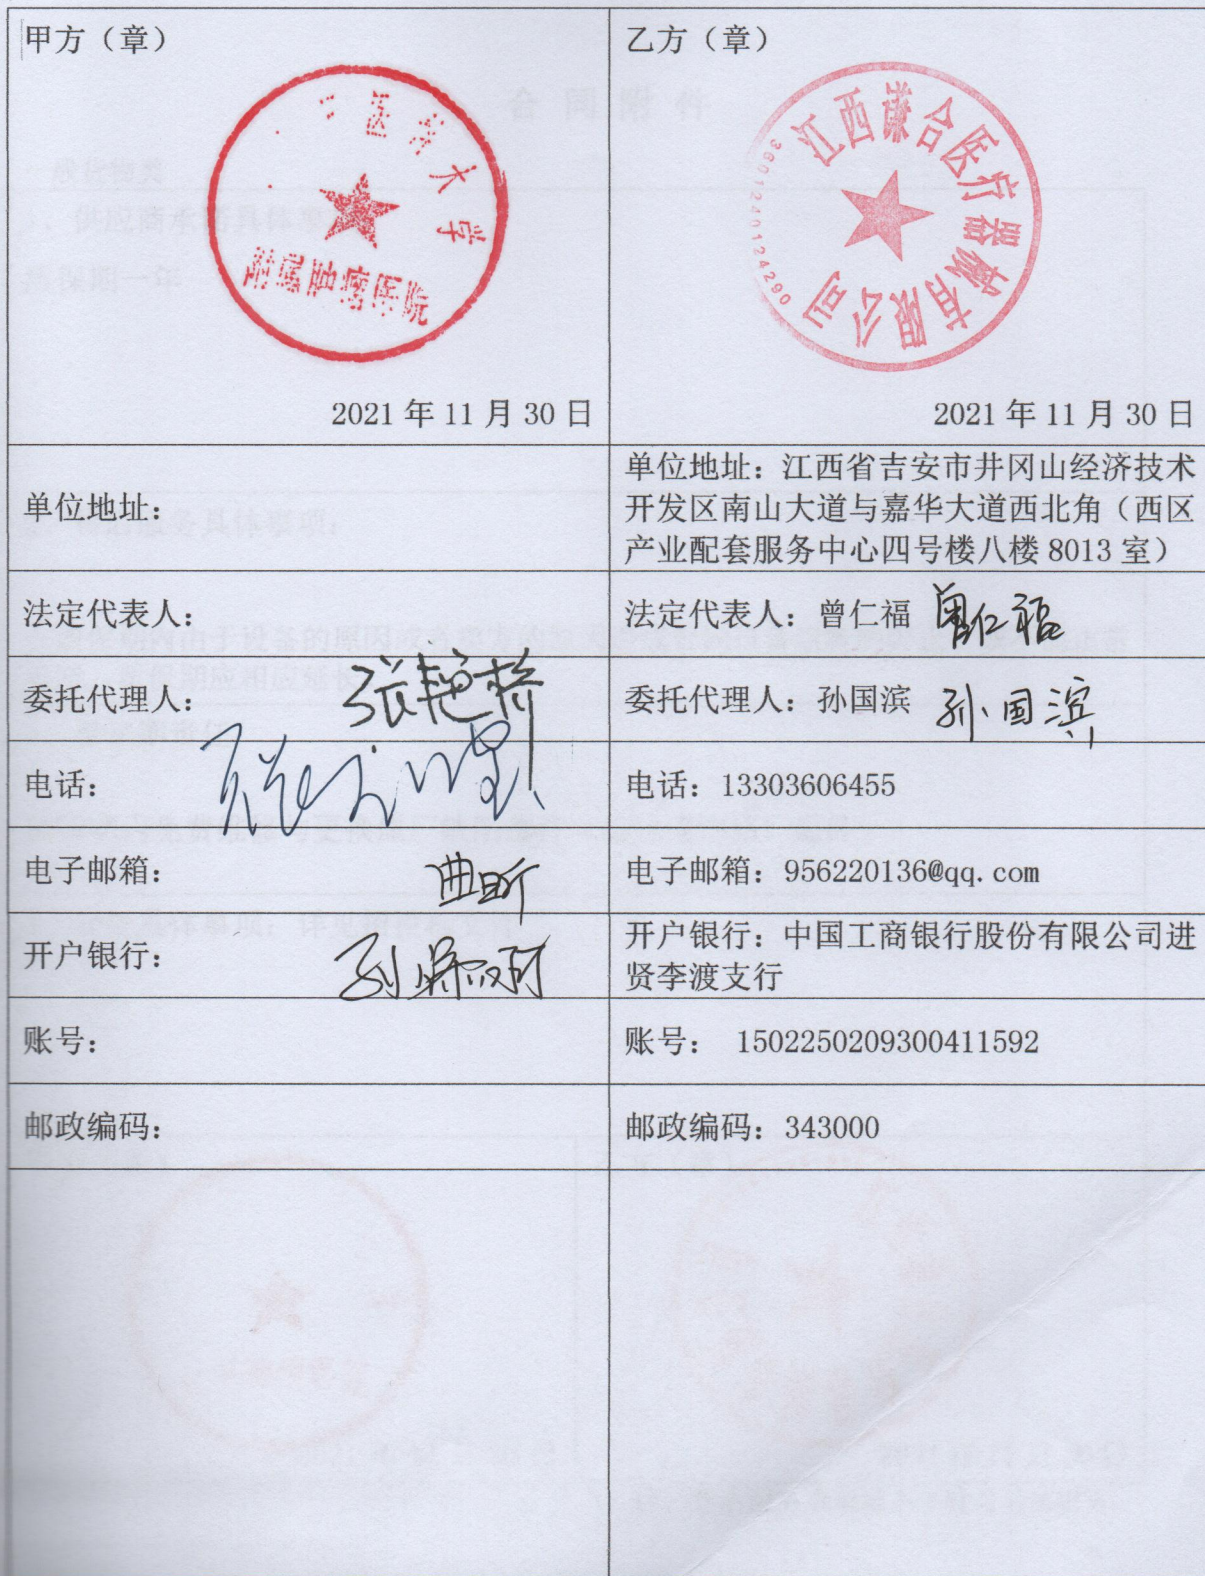 甲方（章）
医科大学
附属肿瘤医院
2021 年 11 月 30 日
乙方（章）
江西谦合医疗器械有限公司
3601240124290
2021 年 11 月 30 日
单位地址：
单位地址：江西省吉安市井冈山经济技术
开发区南山大道与嘉华大道西北角（西区
产业配套服务中心四号楼八楼 8013 室）
法定代表人：
法定代表人：曾仁福 曾仁福
委托代理人：
委托代理人：孙国滨 孙国滨
电话：
电话：13303606455
电子邮箱：
曲昕
电子邮箱：956220136@qq.com
开户银行：
开户银行：中国工商银行股份有限公司进
贤李渡支行
账号：
账号： 1502250209300411592
邮政编码：
邮政编码：343000
合同附件